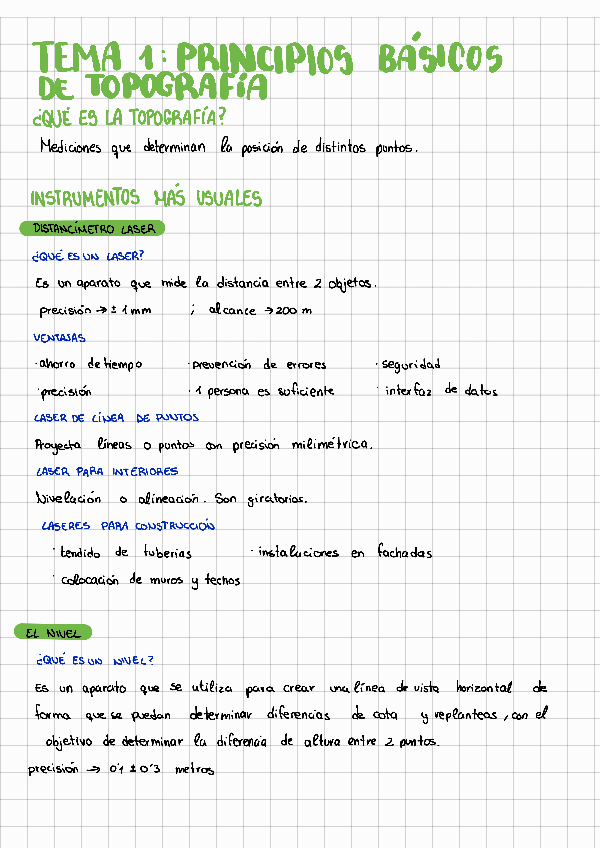 TEMA 1: PRINCIPIOS BÁSICOS
DE TOPOGRAFÍA
¿QUÉ ES LA TOPOGRAFÍA?
Mediciones que determinan la posición de distintos puntos.
INSTRUMENTOS MÁS USUALES
DISTANCÍMETRO LASER
¿QUÉ ES UN LASER?
Es un aparato que mide la distancia entre 2 objetos.
precisión → ± 1 mm ; alcance → 200 m
VENTAJAS
· ahorro de tiempo · prevención de errores · seguridad
· precisión · 1 persona es suficiente · interfaz de datos
LASER DE LÍNEA DE PUNTOS
Proyecta líneas o puntos con precisión milimétrica.
LASER PARA INTERIORES
Nivelación o alineación. Son giratorios.
LASERES PARA CONSTRUCCIÓN
· tendido de tuberías · instalaciones en fachadas
· colocación de muros y techos
EL NIVEL
¿QUÉ ES UN NIVEL?
Es un aparato que se utiliza para crear una línea de vista horizontal de
forma que se puedan determinar diferencias de cota y replanteos, con el
objetivo de determinar la diferencia de altura entre 2 puntos.
precisión → 0'1 ± 0'3 metros